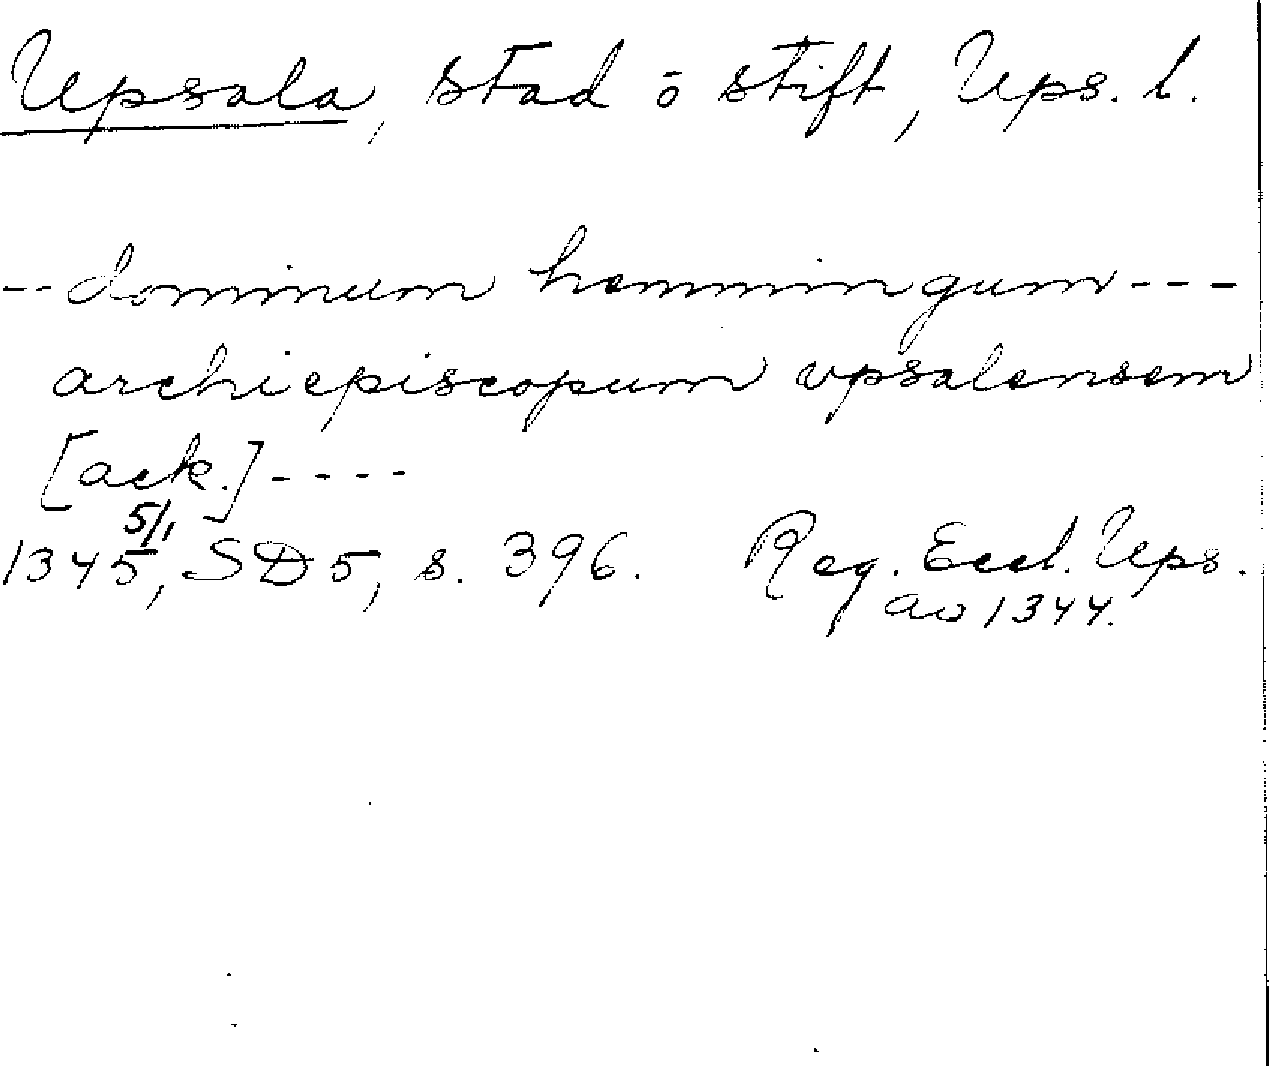 Upsala, stad o stift, Ups. l.
-- dominum hemmingum ---
archiepiscopum vpsalensem
[ack.] ----
1345 5/1, SD 5, s. 396. Reg. Eccl. Ups.
av 1344.